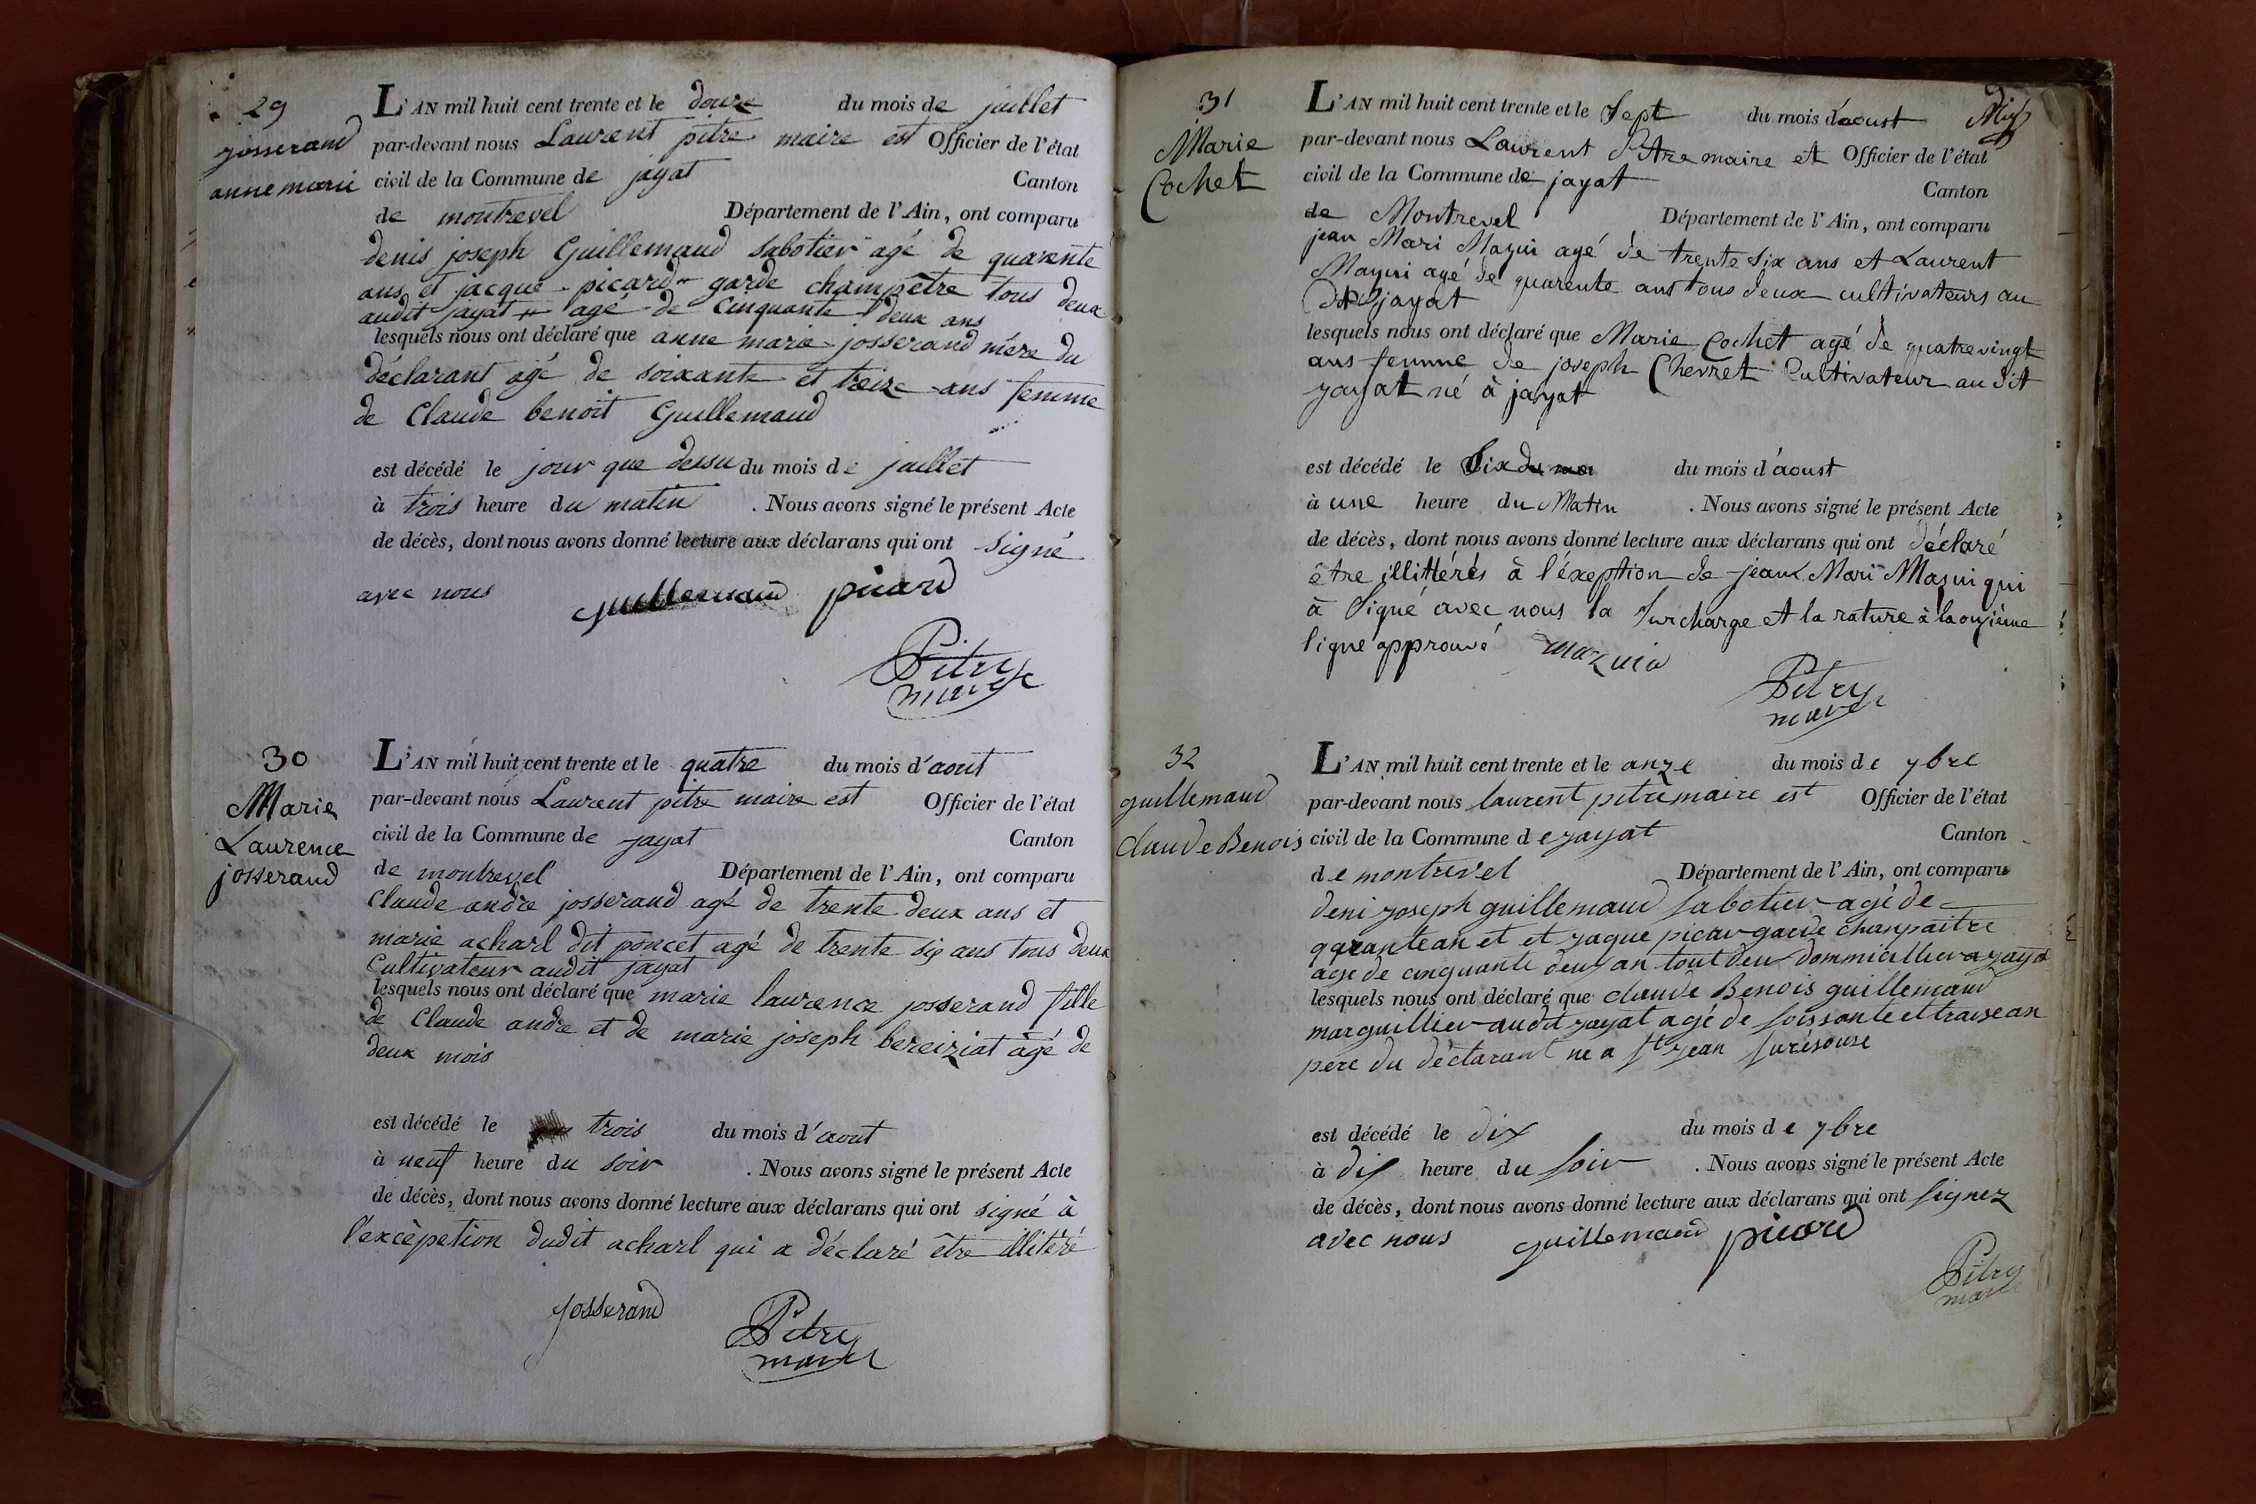 29
josserand
anne marie
L'AN mil huit cent trente et le douze du mois de juillet
par-devant nous Laurent pitre maire est Officier de l'état
civil de la Commune de jayat Canton
de montrevel Département de l'Ain, ont comparu
denis joseph Guillemaud sabotier agé de quarente
ans et jacque picard garde champêtre tous deux
audit jayat agé de cinquante deux ans
lesquels nous ont déclaré que anne marie josserand mére du
déclarant agé de soixante et treize ans femme
de Claude benoit Guillemaud
est décédé le jour que dessu du mois de juillet
à trois heure du matin . Nous avons signé le présent Acte
de décès, dont nous avons donné lecture aux déclarans qui ont signé
avec nous guillemaud picard
Pitre
maire
30
Marie
Laurence
josserand
L'AN mil huit cent trente et le quatre du mois d'aout
par-devant nous Laurent pitre maire est Officier de l'état
civil de la Commune de jayat Canton
de montrevel Département de l'Ain, ont comparu
Claude andre josserand agé de trente deux ans et
marie acharl dit poncet agé de trente six ans tous deux
Cultivateur audit jayat
lesquels nous ont déclaré que marie laurence josserand fille
de Claude andre et de marie joseph bereiziat agé de
deux mois
est décédé le trois du mois d'aout
à neuf heure du soir . Nous avons signé le présent Acte
de décès, dont nous avons donné lecture aux déclarans qui ont signé à
l'excèpetion dudit acharl qui a déclaré être illitéré
josserand
Pitre
maire
31
Marie
Cochet
L'AN mil huit cent trente et le Sept du mois d'aoust
par-devant nous Laurent Pitre maire et Officier de l'état
civil de la Commune de jayat Canton
de Montrevel Département de l'Ain, ont comparu
jean Mari Mazui agé de trente six ans et Laurent
Mazui agé de quarente ans tous deux cultivateurs au
dit jayat
lesquels nous ont déclaré que Marie Cochet agé de quatrevingt
ans femme de joseph Chevret Cultivateur au dit
jayat né à jayat
est décédé le Six du mois d'aoust
à une heure du Matin . Nous avons signé le présent Acte
de décès, dont nous avons donné lecture aux déclarans qui ont déclaré
être illittérés à l'éxeption de jean Mari Mazui qui
à Signé avec nous la Surcharge et la rature à la onzième
ligne approuvé mazuia
Pitre
maire
32
guillemaud
claude Benois
L'AN mil huit cent trente et le anze du mois de 7bre
par-devant nous laurent pitre maire est Officier de l'état
civil de la Commune de jayat Canton
de montrevel Département de l'Ain, ont comparu
deni joseph guillemaud sabotier agé de
qarante an et et jaque picar garde chanpaitre
age de cinquante deux an tout deu dommicillier a jayat
lesquels nous ont déclaré que claude Benois guillemaud
marguillier audit jayat agé de soissante et traise an
pere du déclarant ne a St jean surésouse
est décédé le dix du mois de 7bre
à dix heure du soir . Nous avons signé le présent Acte
de décès, dont nous avons donné lecture aux déclarans qui ont signez
avec nous guillemaud picard
Pitre
maire